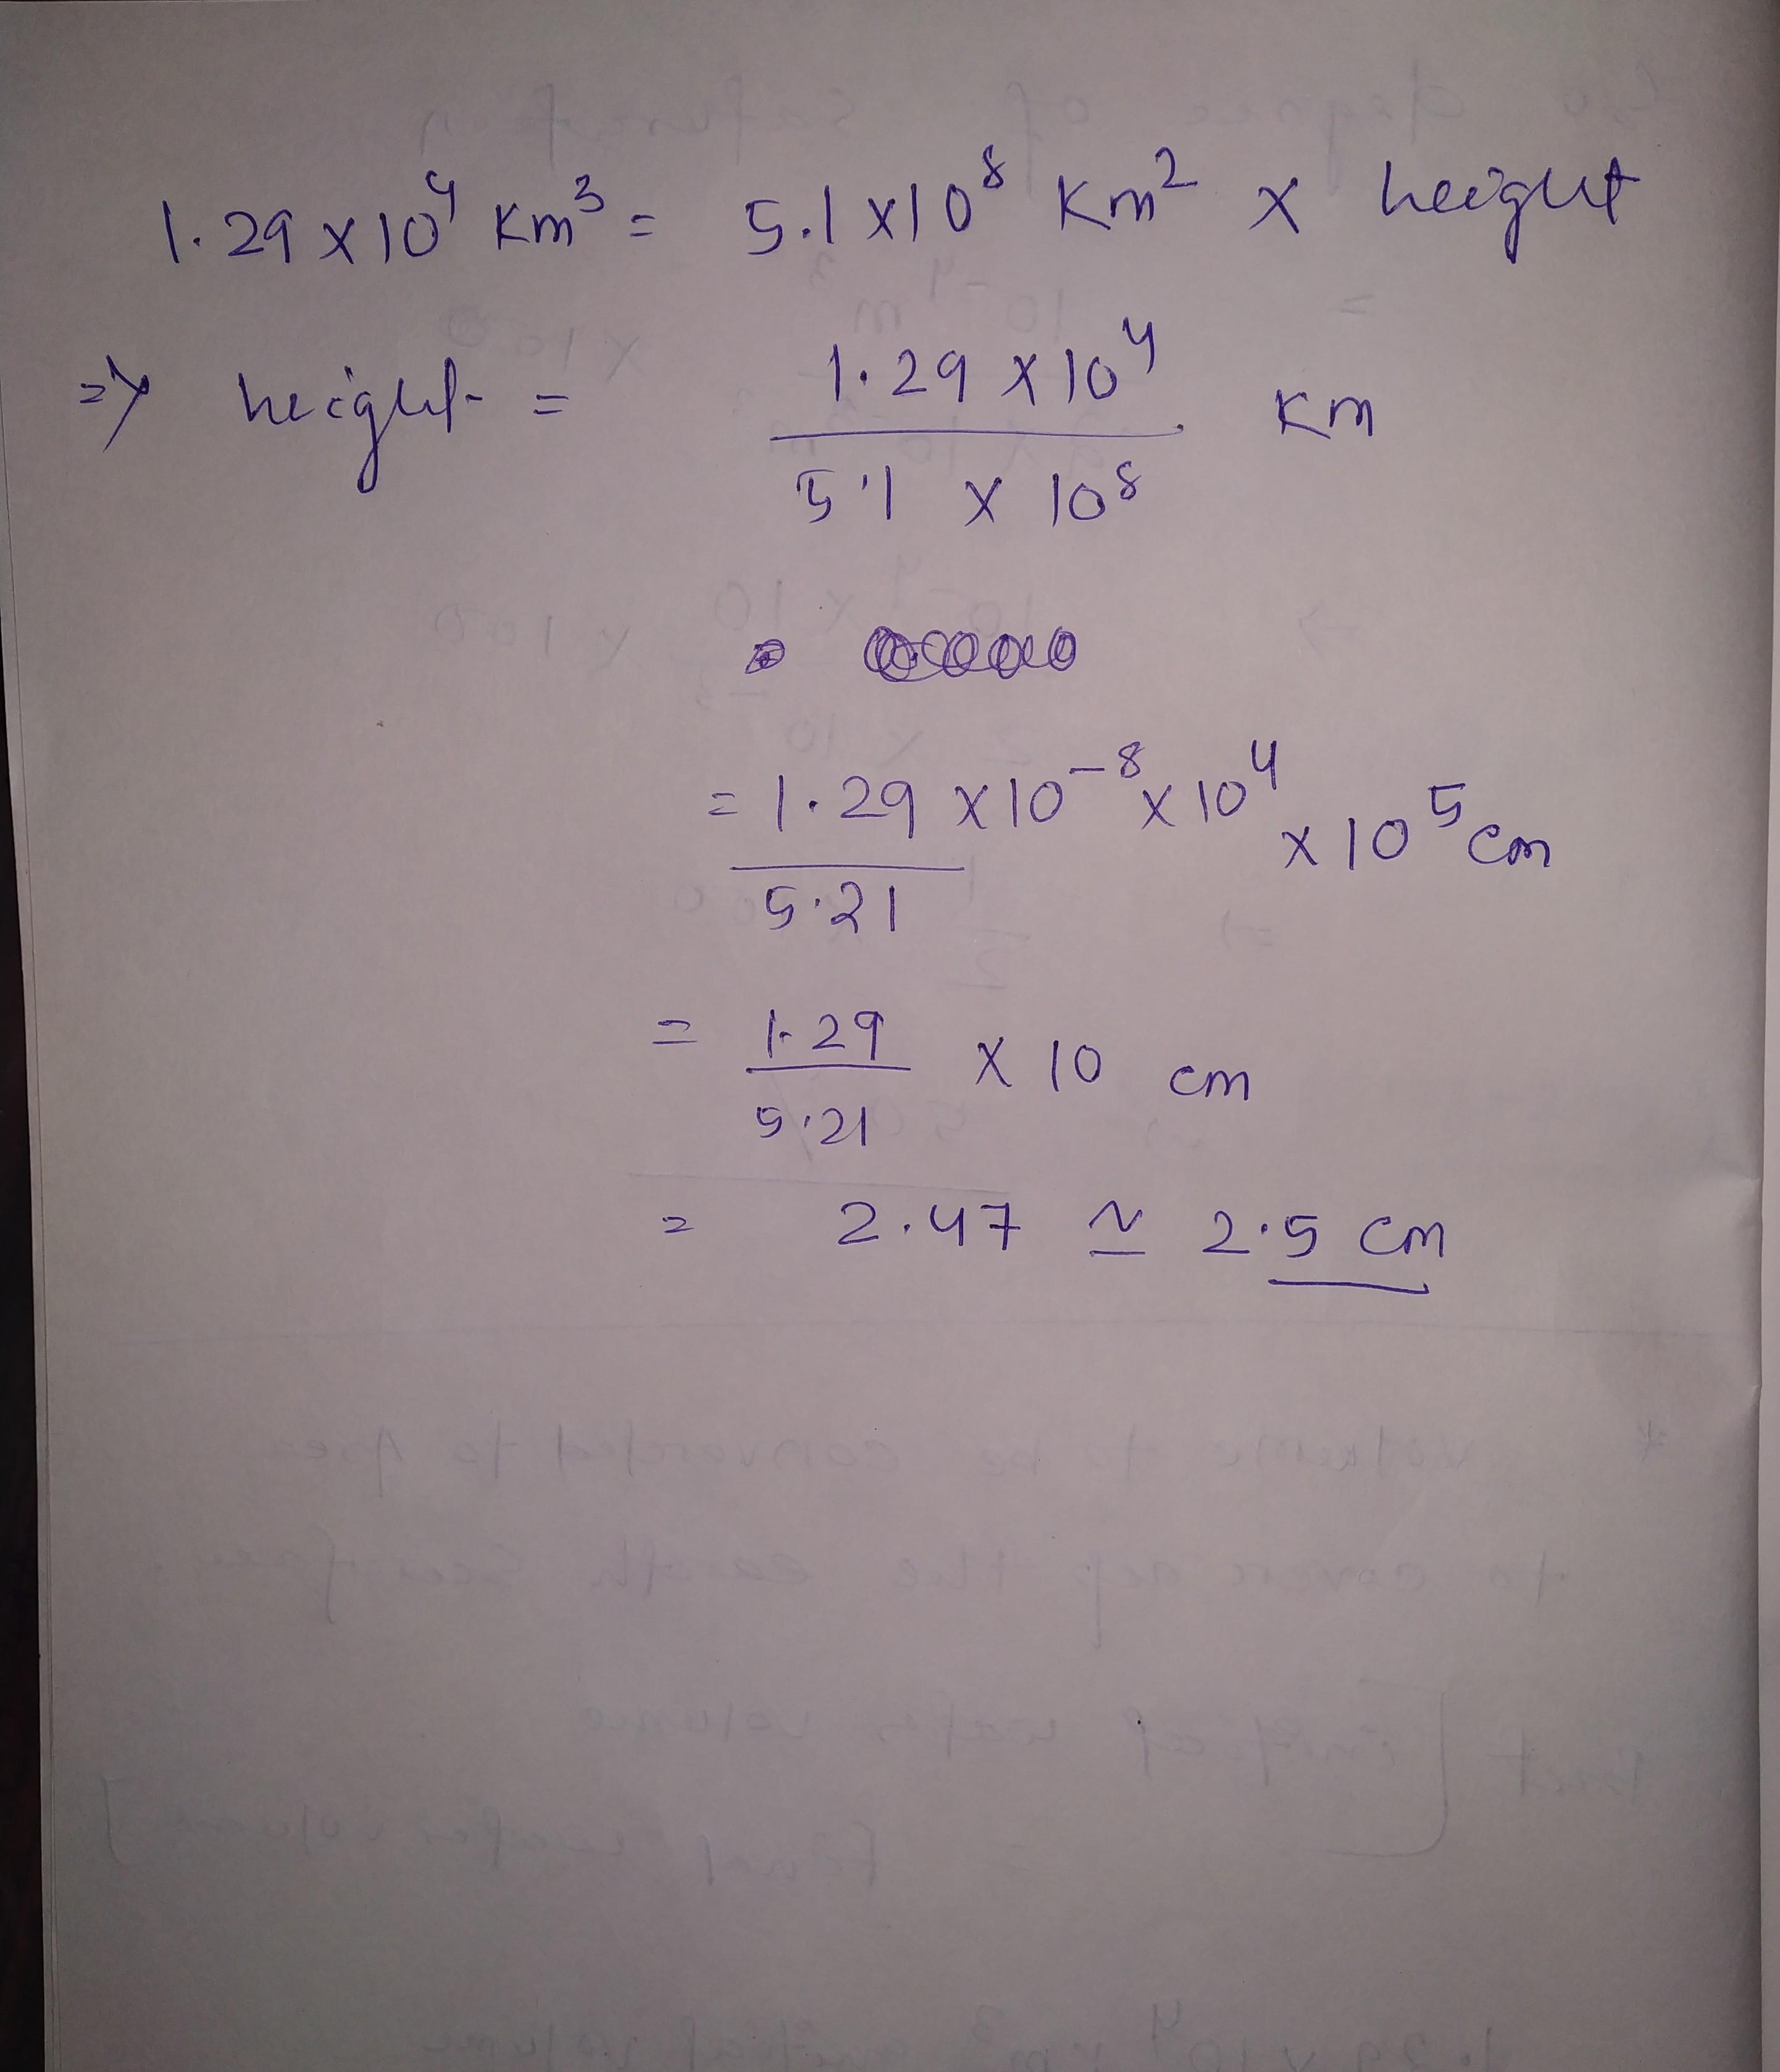 1.29 x 10⁴ Km³ = 5.1 x 10⁸ Km² x height
=> height = 1.29 x 10⁴ / 5.1 x 10⁸ Km
= 1.29 / 5.21 x 10⁻⁸ x 10⁴ x 10⁵ cm
= 1.29 / 5.21 x 10 cm
= 2.47 ≃ 2.5 cm